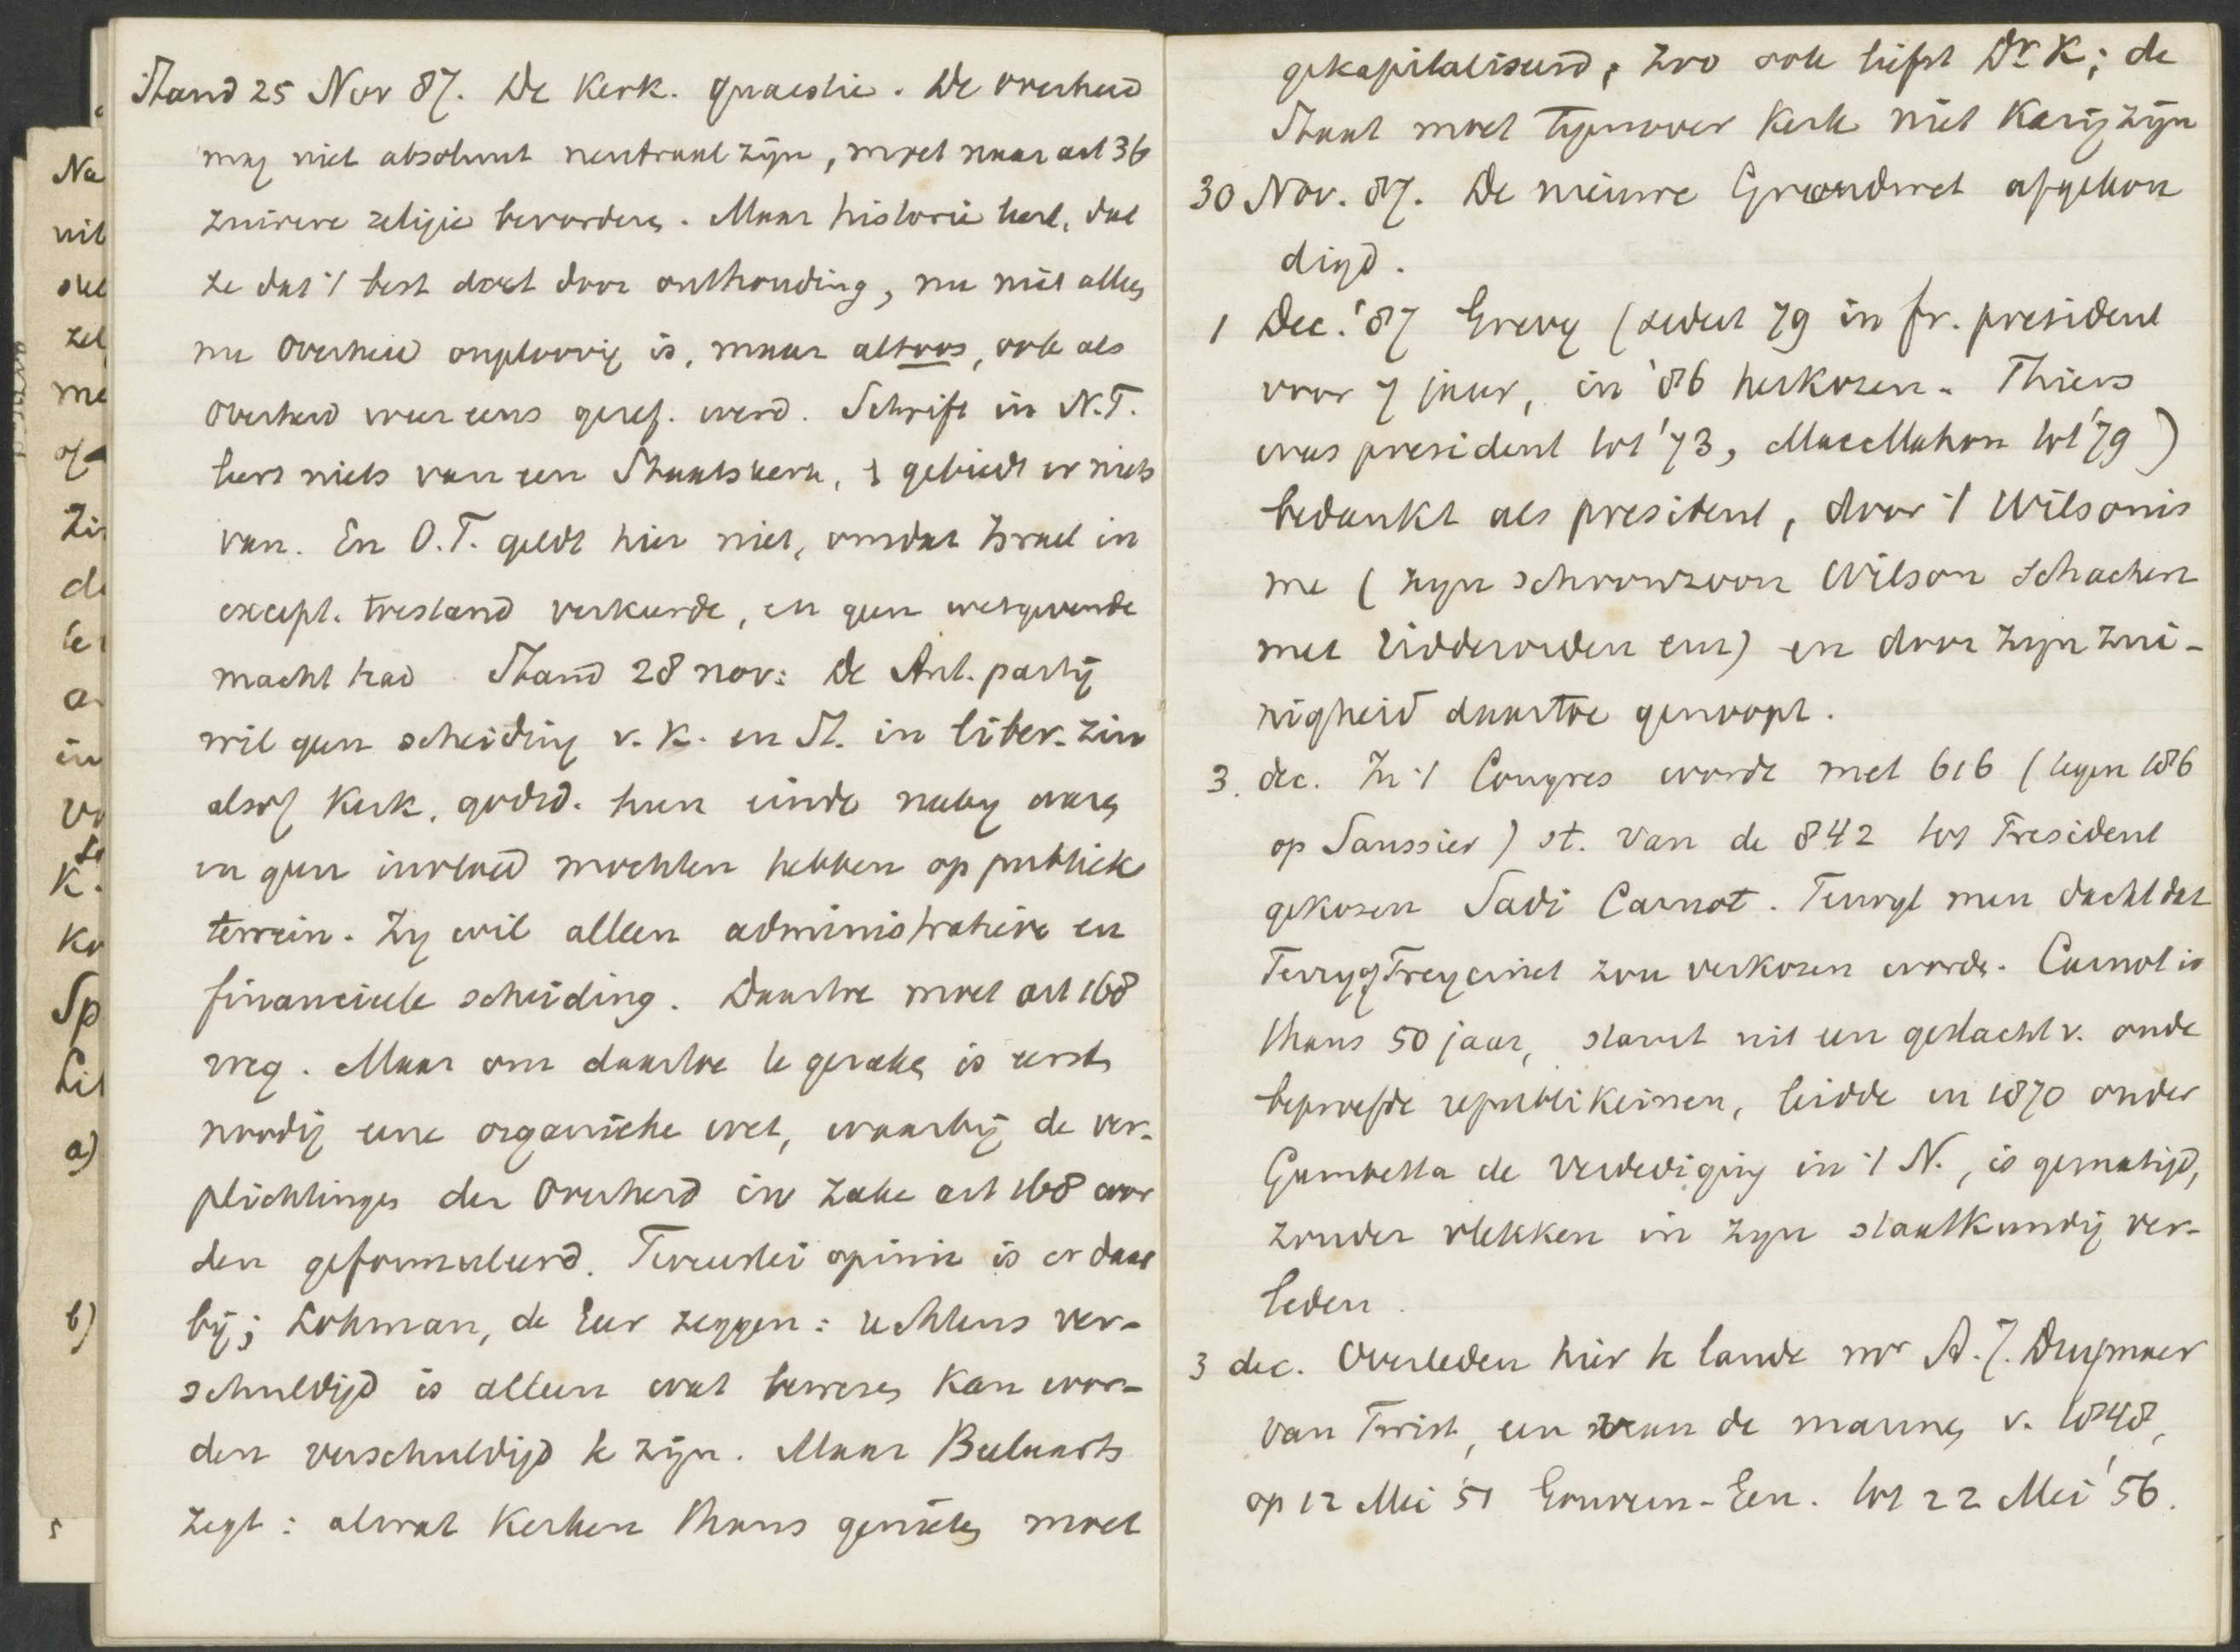 Stand 25 Nov 87. De Kerk. quaestie. De overheid
mag niet absoluut neutraal zijn, moet naar art 36
zuivere religie bevorderen. Maar historie leert, dat
ze dat 't best doet door onthouding, nu niet alleen
nu Overheid ongeloovig is, maar altoos, ook als
Overheid weer eens geref. werd. Schrift in N.T.
leert niets van een Staatskerk, & gebiedt er niets
van. En O.T. geldt hier niet, omdat Israel in
except. toestand verkeerde, en geen wetgevende
macht had. Stand 28 nov: De Ant. partij
wil geen scheiding v. K. en St. in liber. zin
alsof Kerk, godsd. hun einde nabij waren
en geen invloed mochten hebben op publiek
terrein. Zij wil alleen administratieve en
financieele scheiding. Daartoe moet art 168
weg. Maar om daartoe te geraken is eerst
noodig eene organieke wet, waarbij de ver-
plichtingen der Overheid in zake art 168 wor
den geformuleerd. Tweeërlei opinie is er daar
bij; Lohman, de Geer zeggen: rechtens ver-
schuldigd is alleen wat bewezen kan wor-
den verschuldigd te zijn. Maar Beelaerts
zegt: alwat Kerken thans genieten moet
gekapitaliseerd; zoo ook liefst Dr K; de
Staat moet tegenover Kerk niet karig zijn
30 Nov. 87. De nieuwe Grondwet afgekon
digd.
1 Dec. '87 Grevy (sedert 79 in Fr. president
voor 7 jaar, in '86 herkozen. Thiers
was president tot '73, MacMahon tot '79)
bedankt als president, door 't Wilsonis
me (zijn schoonzoon Wilson schacherde
met ridderorden enz) en door zijn zui-
nigheid daartoe genoopt.
3. dec. In 't Congres wordt met 616 (tegen 186
op Saussier) st. van de 842 tot President
gekozen Sadi Carnot. Terwijl men dacht dat
Ferry of Freycinet zou verkozen worden. Carnot is
thans 50 jaar, stamt uit een geslacht v. oude
beproefde republikeinen, leidde in 1870 onder
Gambetta de verdediging in 't N., is gematigd,
zonder vlekken in zijn staatkundig ver-
leden.
3 dec. Overleden hier te lande mr A.J. Duymaer
van Twist, een van de mannen v. 1848,
op 12 Mei '51 Gouvern-Gen. tot 22 Mei '56.